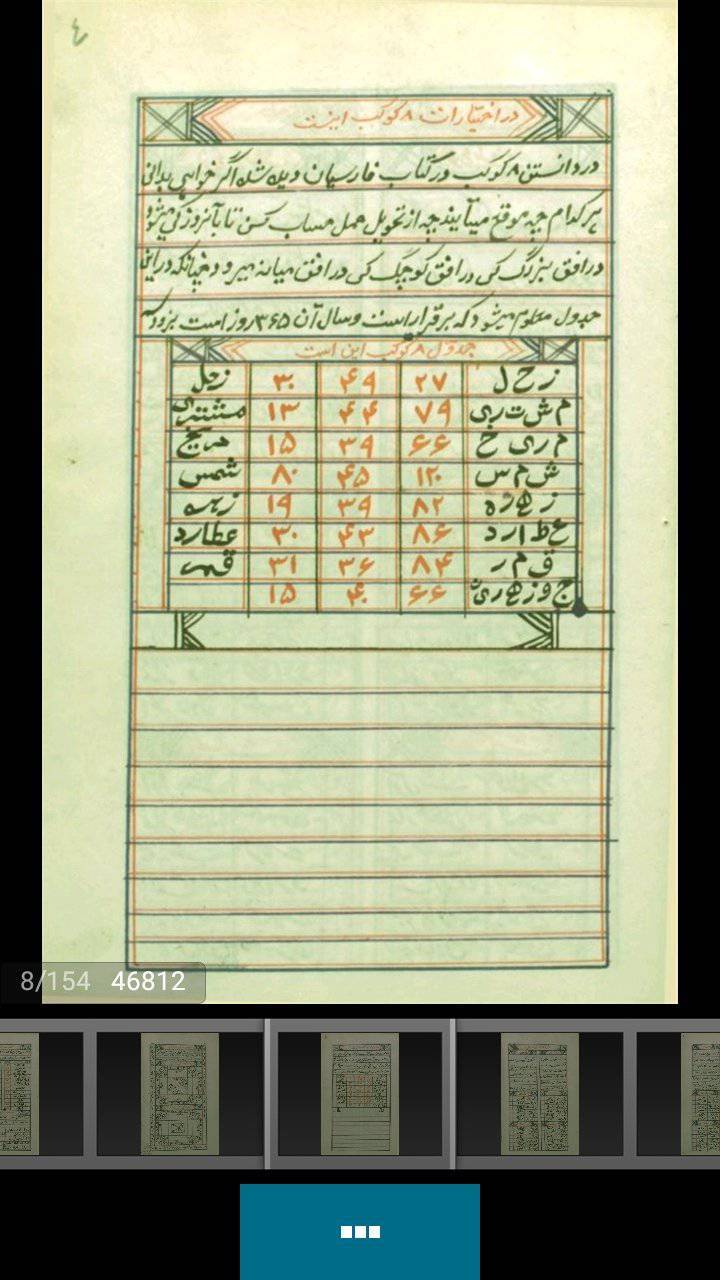 ٤
در اختیارات ۸ کوکب اینست
در دانستن ۸ کوکب در کتاب فارسیان دیده شد اگر خواهی بدانی
هر کدام چه موقع میآیند چه از تحویل حمل حساب کن تا بآنروز کی میشود
در افق بزرگ کی در افق کوچک کی در افق میانه میرود چنانکه در این
جدول معلوم میشود که برقرار است و سال آن ۳۶۵ روز است
جدول ۸ کوکب این است
ز ح ل ۲۷ ۴۹ ۳۰ زحل
م ش ت ری ۷۹ ۴۴ ۱۳ مشتری
م ری خ ۶۶ ۳۹ ۱۵ مریخ
ش م س ۱۲۰ ۴۵ ۸۰ شمس
ز ه ره ۸۲ ۳۹ ۱۹ زهره
ع ط ا ر د ۸۶ ۴۳ ۳۰ عطارد
ق م ر ۸۴ ۳۶ ۳۱ قمر
ج و ز ه ری ۶۶ ۴۰ ۱۵
8/154 46812